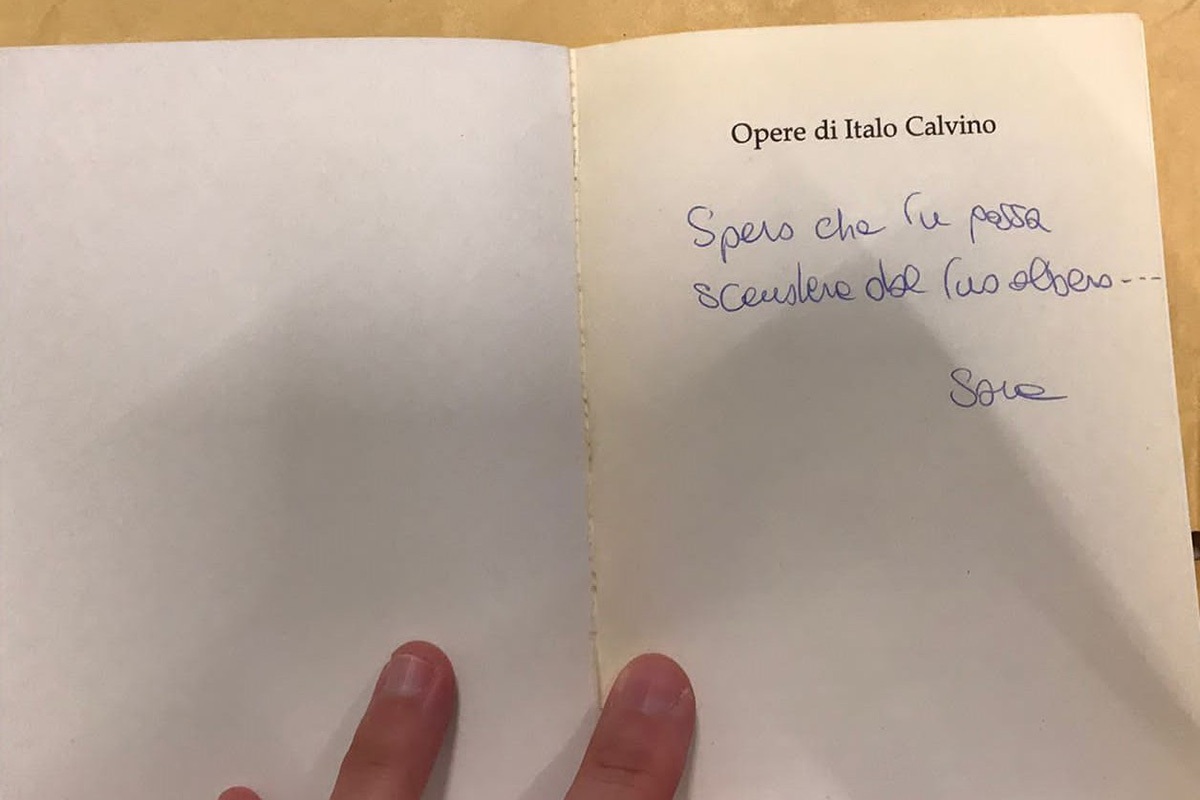 Opere di Italo Calvino
Spero che tu possa
scendere dal tuo albero---
Sara